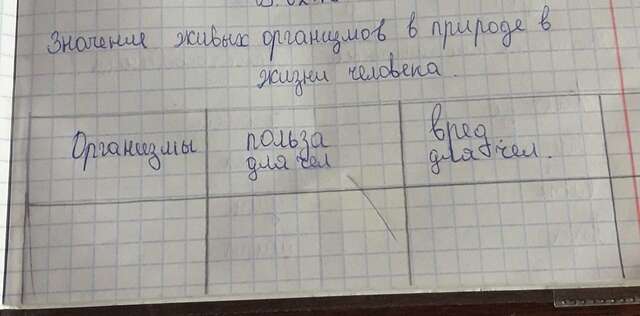 Значение живых организмов в природе в
жизни человека.
Организмы
польза
для чел
вред
для чел.